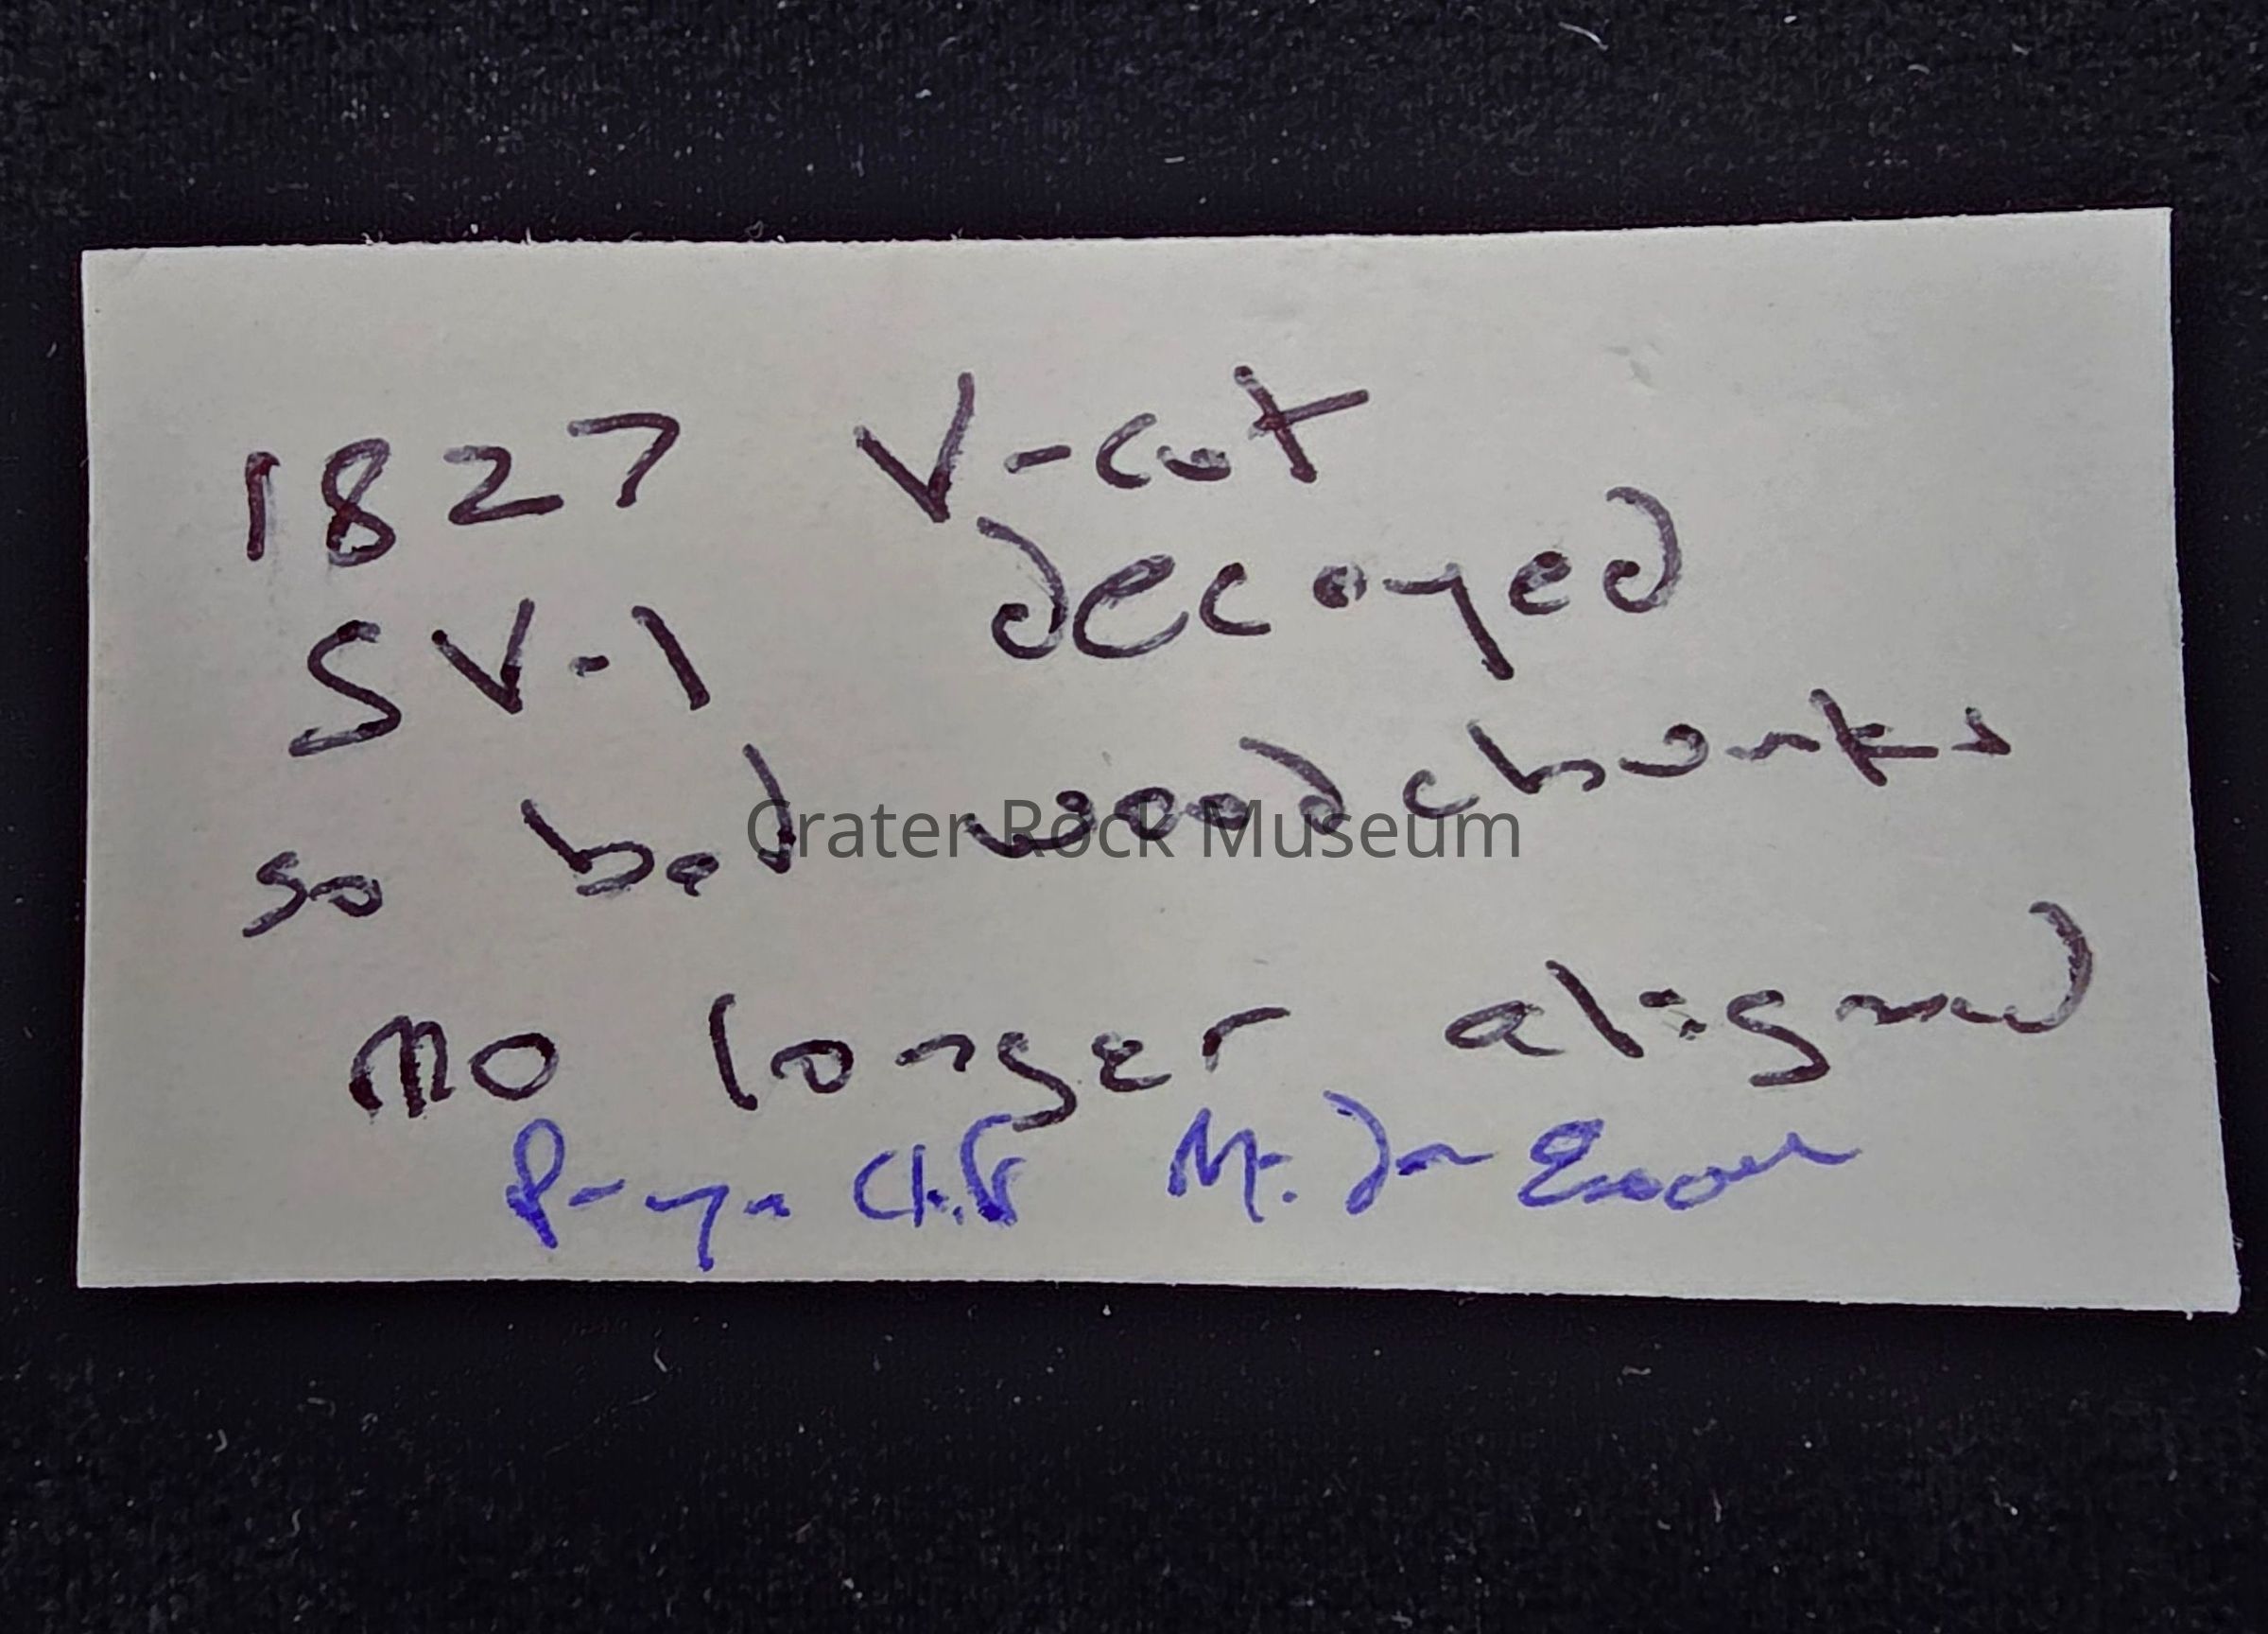 1827 V-cut
SV-1 decayed
so bad wood chunks
no longer aligned
Crater Rock Museum